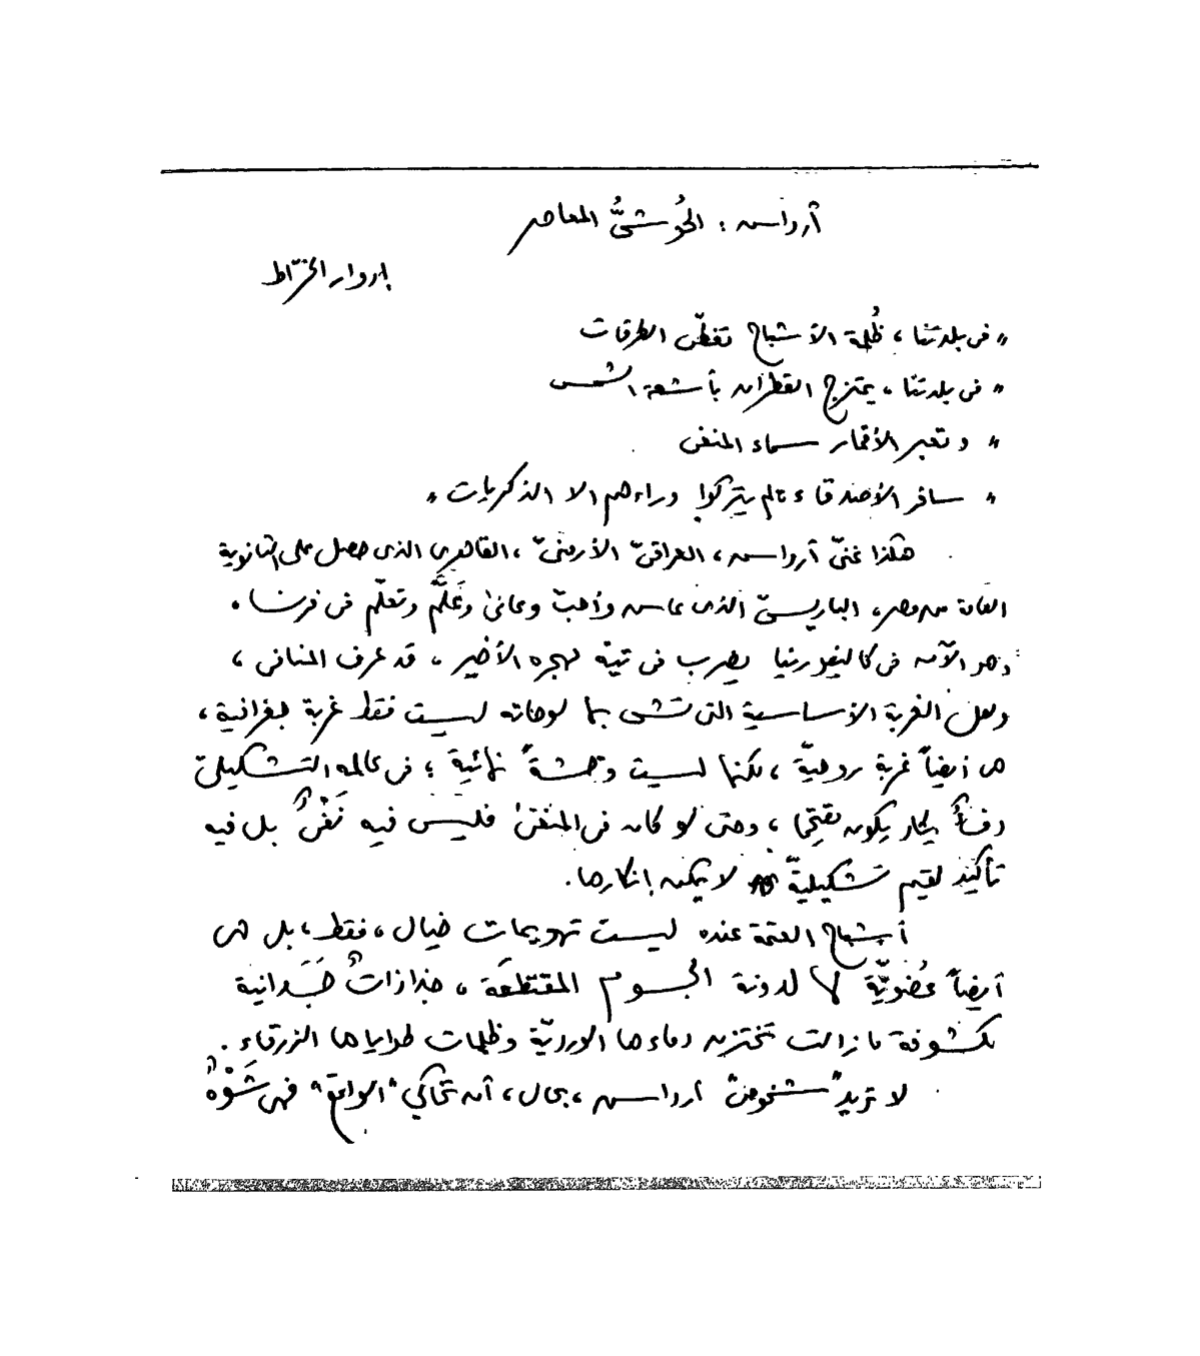 آرداس : الحُوشىُّ المعاصر
إدوار الخرّاط
" فى بلدتنا ، ظُلمة الأشباح تغطّى الطرقات
" فى بلدتنا ، يمتزج القطران بأشعة الشمس
" وتعبر الأقمار سماء المنفى
" سافر الأصدقاء لم يتركوا وراءهم الا الذكريات "
هكذا غنىّ آرداس ، العراقىّ الأرمنىّ ، القاهرى الذى حصل على الثانوية
العامة من مصر ، الباريسىّ الذى عاش وأحبّ وعانى وعَلَّمَ وتعلّم فى فرنسا .
وهو الآن فى كاليفورنيا يضرب فى تيه مهجره الأخير ، قد عرف المنافى ،
ولعل الغربة الأساسية التى تشى بها لوحاته ليست فقط غربة جغرافية ،
هى أيضاً غربة روحيّة ، لكنها ليست وحشةً نهائية ؛ فى عالمه التشكيلىّ
دفءٌ يكاد يكون مقيماً ، وحتى لو كان فى المنفى فليس فيه نَفْىٌ بل فيه
تأكيد لقيم تشكيليةّ لا يمكن إنكارها .
أشباح العتمة عنده ليست تهويمات خيال ، فقط ، بل هى
أيضاً عُضويّة لها لدونة الجسوم المقتطعَة ، جذاذاتٌ جَسَدانية
مكشوفة ما زالت تختزن دماءها الورديّة وظلمات طواياها الزرقاء .
لا تريد "شخوص" آرداس ، بحال ، أن تحاكي "الواقع" فهى شَوْهٌ